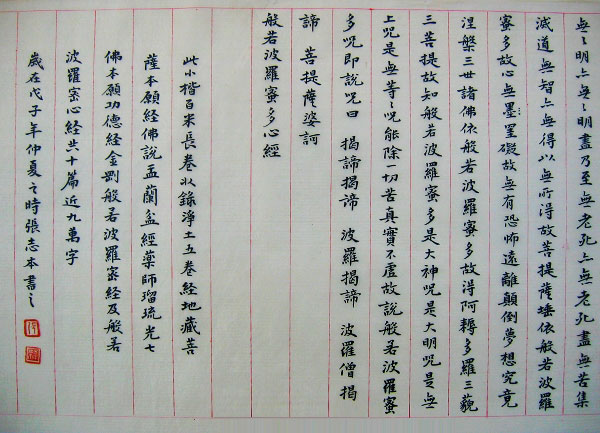 無〻明亦無〻明盡乃至無老死亦無老死盡無苦集
滅道無智亦無得以無所得故菩提薩埵依般若波羅
蜜多故心無墨罣礙故無有恐怖遠離顛倒夢想究竟
涅槃三世諸佛依般若波羅蜜多故得阿耨多羅三藐
三菩提故知般若波羅蜜多是大神咒是大明咒是無
上咒是無等〻咒能除一切苦真實不虛故說般若波羅蜜
多咒即說咒曰 揭諦揭諦 波羅揭諦 波羅僧揭
諦 菩提薩婆訶
般若波羅蜜多心經
此小楷百米長卷以錄淨土五卷經地藏菩
薩本願經佛說盂蘭盆經藥師瑠琉光七
佛本願功德經金剛般若波羅密經及般若
波羅密心經共十篇近九萬字
歲在戊子年仲夏之時張志本書之